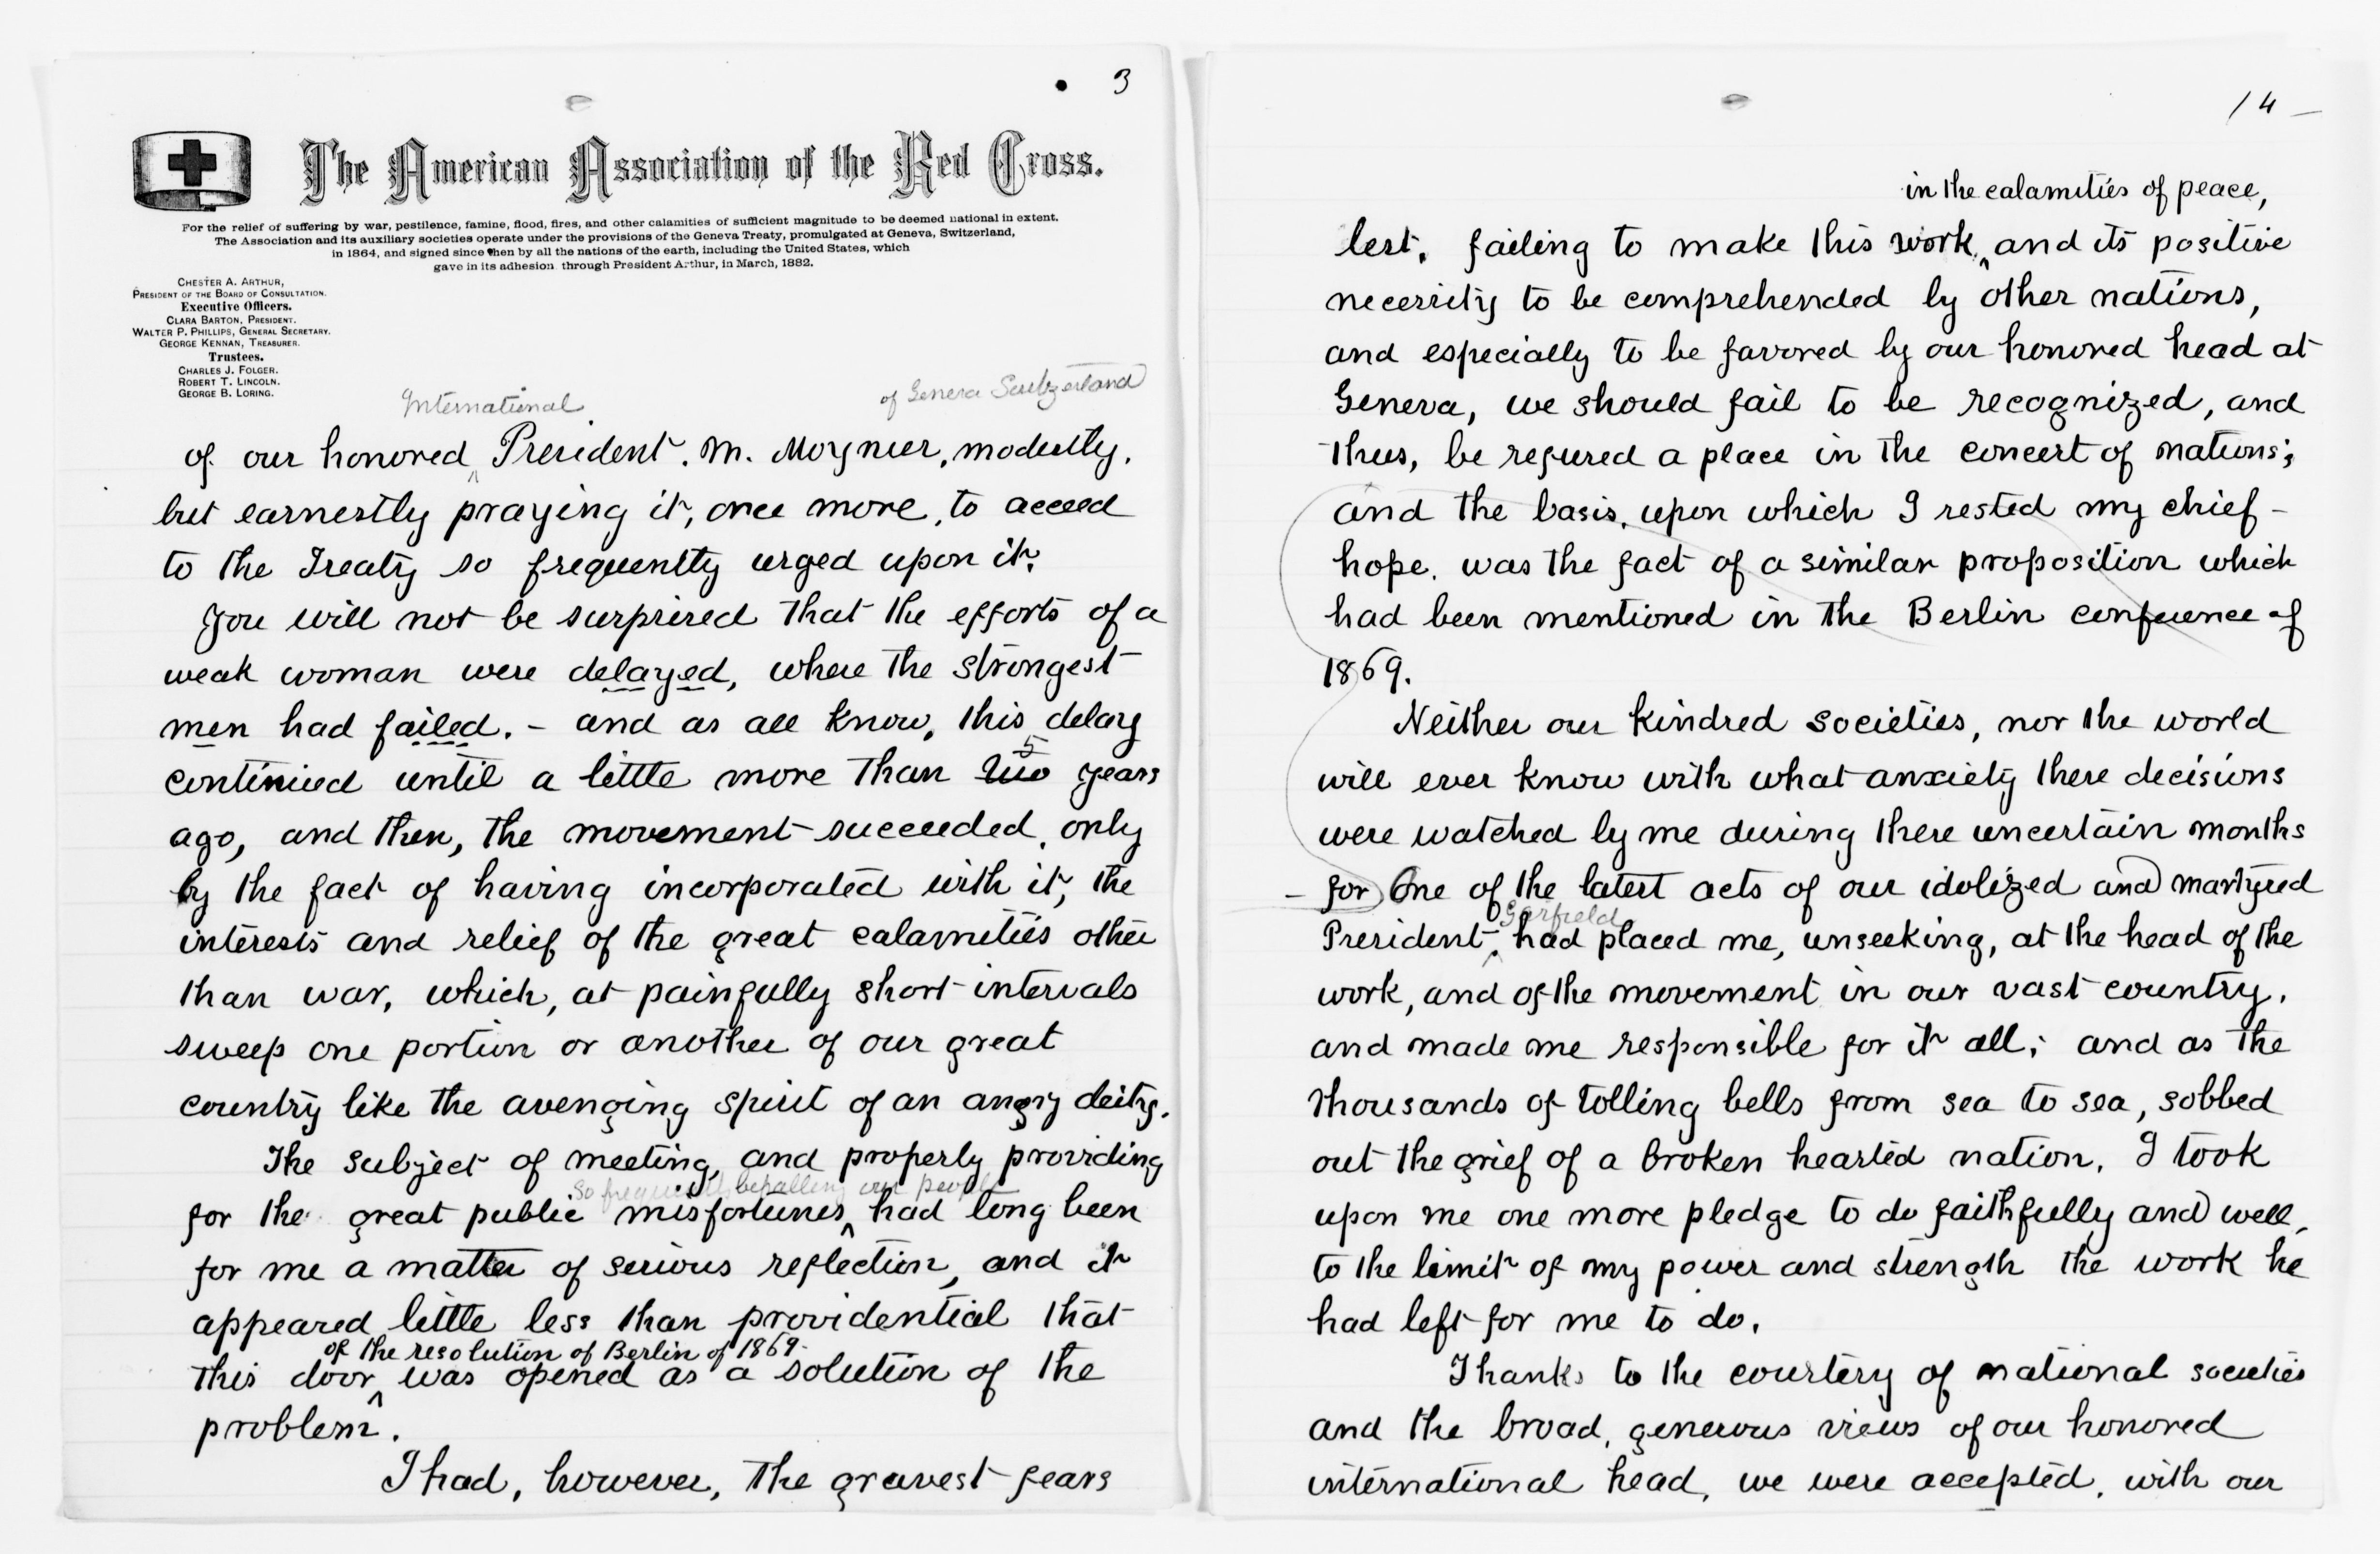 3
The American Association of the Red Cross.
For the relief of suffering by war, pestilence, famine, flood, fires, and other calamities of sufficient magnitude to be deemed national in extent.
The Association and its auxiliary societies operate under the provisions of the Geneva Treaty, promulgated at Geneva, Switzerland,
in 1864, and signed since then by all the nations of the earth, including the United States, which
gave in its adhesion through President Arthur, in March, 1882.
CHESTER A. ARTHUR,
PRESIDENT OF THE BOARD OF CONSULTATION.
Executive Officers.
CLARA BARTON, PRESIDENT.
WALTER P. PHILLIPS, GENERAL SECRETARY.
GEORGE KENNAN, TREASURER.
Trustees.
CHARLES J. FOLGER.
ROBERT T. LINCOLN.
GEORGE B. LORING.
International of Geneva Switzerland
of our honored ^ President. M. Moynier, modestly,
but earnestly praying it, once more, to acceed
to the Treaty so frequently urged upon it.
You will not be surprised that the efforts of a
weak woman were delayed, where the strongest
men had failed. – and as all know, this delay
5
continued until a little more than two years
ago, and then, the movement succeeded, only
by the fact of having incorporated with it, the
interests and relief of the great calamities other
than war, which, at painfully short intervals
sweep one portion or another of our great
country like the avenging spirit of an angry deity.
The subject of meeting, and properly providing
so frequently befalling our people
for the great public misfortunes ^ had long been
for me a matter of serious reflection, and it
appeared little less than providential that
of the resolution of Berlin of 1869-
this door ^ was opened as a solution of the
problem.
I had, however, the gravest fears
14 –
in the calamities of peace,
lest, failing to make this work, ^ and its positive
necessity to be comprehended by other nations,
and especially to be favored by our honored head at
Geneva, we should fail to be recognized, and
thus, be refused a place in the concert of nations;
and the basis, upon which I rested my chief –
hope, was the fact of a similar proposition which
had been mentioned in the Berlin conference of
1869.
Neither our kindred societies, nor the world
will ever know with what anxiety these decisions
were watched by me during these uncertain months
– for One of the latest acts of our idolized and martyred
Garfield
President, ^ had placed me, unseeking, at the head of the
work, and of the movement in our vast country,
and made me responsible for it all; and as the
thousands of tolling bells from sea to sea, sobbed
out the grief of a broken hearted nation, I took
upon me one more pledge to do faithfully and well,
to the limit of my power and strength the work he
had left for me to do.
Thanks to the courtesy of national societies
and the broad, generous views of our honored
international head, we were accepted, with our